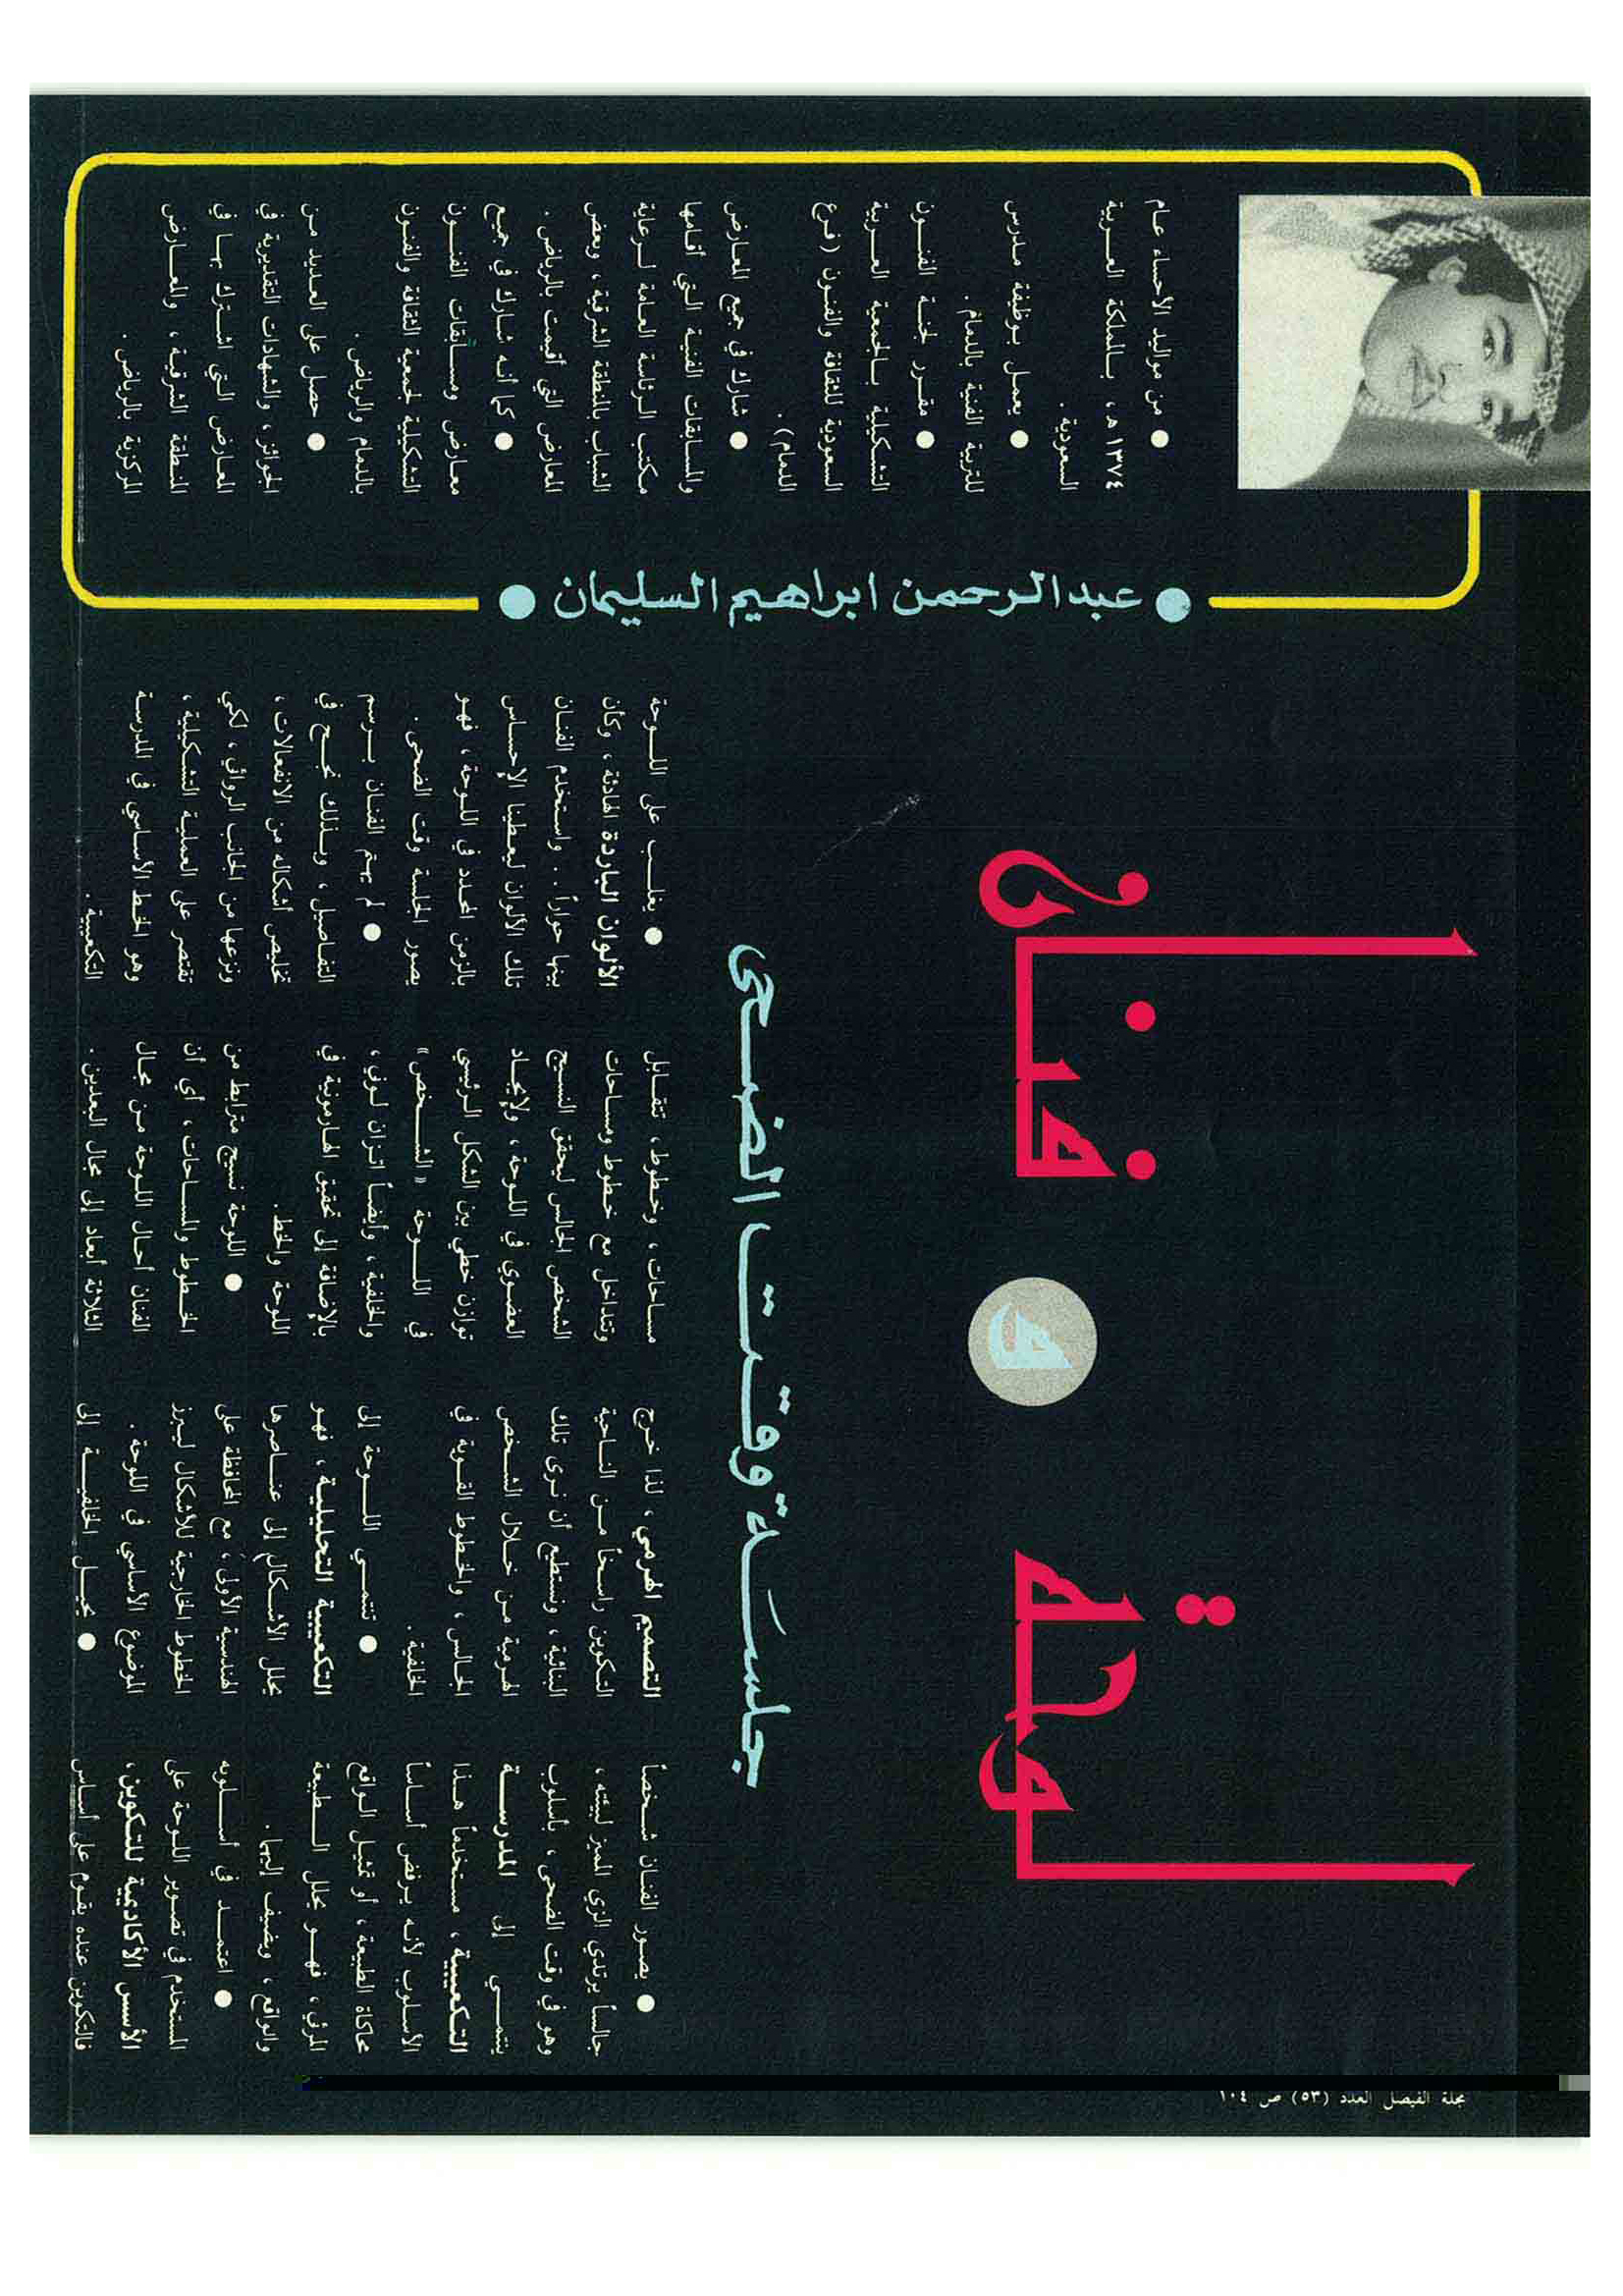 لوحة
و
فنان
جلسة وقت الضحى
● يصور الفنان شخصاً
جالساً يرتدي الزي المميز لبيئته ،
وهو في وقت الضحى ، بأسلوب
ينتمي إلى المدرسة
التكعيبية ، مستخدماً هذا
الأسلوب لأنه يرفض أساساً
محاكاة الطبيعة ، أو تمثيل الواقع
المرئي ، فهو يحلل الطبيعة
والواقع ، ويضيف إليهما .
● اعتمد في أسلوبه
المستخدم في تصوير اللوحة على
الأسس الأكاديمية للتكوين ،
فالتكوين عنده يقوم على أساس
التصميم الهرمي ، لذا خرج
التكوين راسخاً من الناحية
البنائية ، ونستطيع أن نرى تلك
الهرمية من خلال الشخص
الجالس ، والخطوط القوية في
الخلفية .
● تنتمي اللوحة إلى
التكعيبية التحليلية ، فهو
يحلل الأشكال إلى عناصرها
الهندسية الأولى ، مع المحافظة على
الخطوط الخارجية للأشكال ليبرز
الموضوع الأساسي في اللوحة .
● يحيل الخلفية إلى
مساحات ، وخطوط ، تتقابل
وتتداخل مع خطوط ومساحات
الشخص الجالس ليحقق النسيج
العضوي في اللوحة ، ولإيجاد
توازن خطي بين الشكل الرئيسي
في اللوحة « الشخص »
والخلفية ، وأيضاً اتزان لوني ،
بالإضافة إلى تحقيق الهارمونية في
اللوحة والخط .
● اللوحة نسيج مترابط من
الخطوط والمساحات ، أي أن
الفنان أحال اللوحة من مجال
الثلاثة أبعاد إلى مجال البعدين .
● يغلب على اللوحة
الألوان الباردة الهادئة ، وكأن
بينها حواراً .. واستخدم الفنان
تلك الألوان ليعطينا الإحساس
بالزمن المحدد في اللوحة ، فهو
يصور الجلسة وقت الضحى .
● لم يهتم الفنان برسم
التفاصيل ، وبذلك نجح في
تخليص أشكاله من الانفعالات ،
ونزعها من الجانب الروائي ، لكي
تقتصر على العملية التشكيلية ،
وهو الخط الأساسي في المدرسة
التكعيبية .
● عبدالرحمن ابراهيم السليمان ●
● من مواليد الأحساء عام
١٣٧٤ هـ ، بالمملكة العربية
السعودية .
● يعمل بوظيفة مدرس
للتربية الفنية بالدمام .
● مقرر لجنة الفنون
التشكيلية بالجمعية العربية
السعودية للثقافة والفنون ( فرع
الدمام ) .
● شارك في جميع المعارض
والمسابقات الفنية التي أقامها
مكتب الرئاسة العامة لرعاية
الشباب بالمنطقة الشرقية ، وبعض
المعارض التي أقيمت بالرياض .
● كما أنه شارك في جميع
معارض ومسابقات الفنون
التشكيلية لجمعية الثقافة والفنون
بالدمام والرياض .
● حصل على العديد من
الجوائز ، والشهادات التقديرية في
المعارض التي اشترك بها في
المنطقة الشرقية ، والمعارض
المركزية بالرياض .
مجلة الفيصل العدد (٥٣) ص ١٠٤